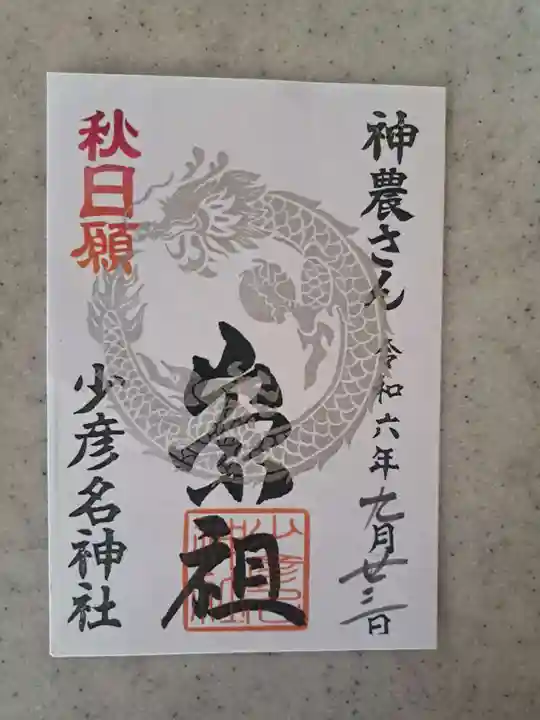 神農さん
令和六年九月廿三日
崇祖
秋日願
少彦名神社